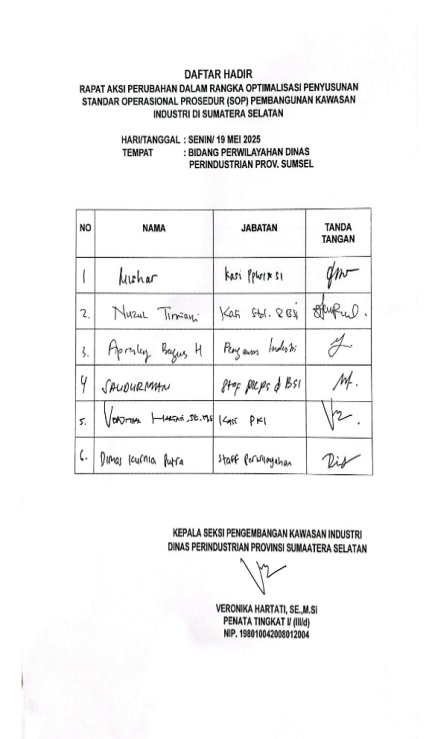 DAFTAR HADIR
RAPAT AKSI PERUBAHAN DALAM RANGKA OPTIMALISASI PENYUSUNAN
STANDAR OPERASIONAL PROSEDUR (SOP) PEMBANGUNAN KAWASAN
INDUSTRI DI SUMATERA SELATAN
HARI/TANGGAL : SENIN/ 19 MEI 2025
TEMPAT : BIDANG PERWILAYAHAN DINAS
PERINDUSTRIAN PROV. SUMSEL
NO NAMA JABATAN TANDA
TANGAN
1 Kasi
2. Nuzul Kasi
3. Bagus H Industri
4 SAUDURMAN
5. Kasi PKI
6. Dimas Kurnia Putra Staff Perwilayahan
KEPALA SEKSI PENGEMBANGAN KAWASAN INDUSTRI
DINAS PERINDUSTRIAN PROVINSI SUMAATERA SELATAN
VERONIKA HARTATI, SE.,M.SI
PENATA TINGKAT I/ (III/d)
NIP. 198010042008012004